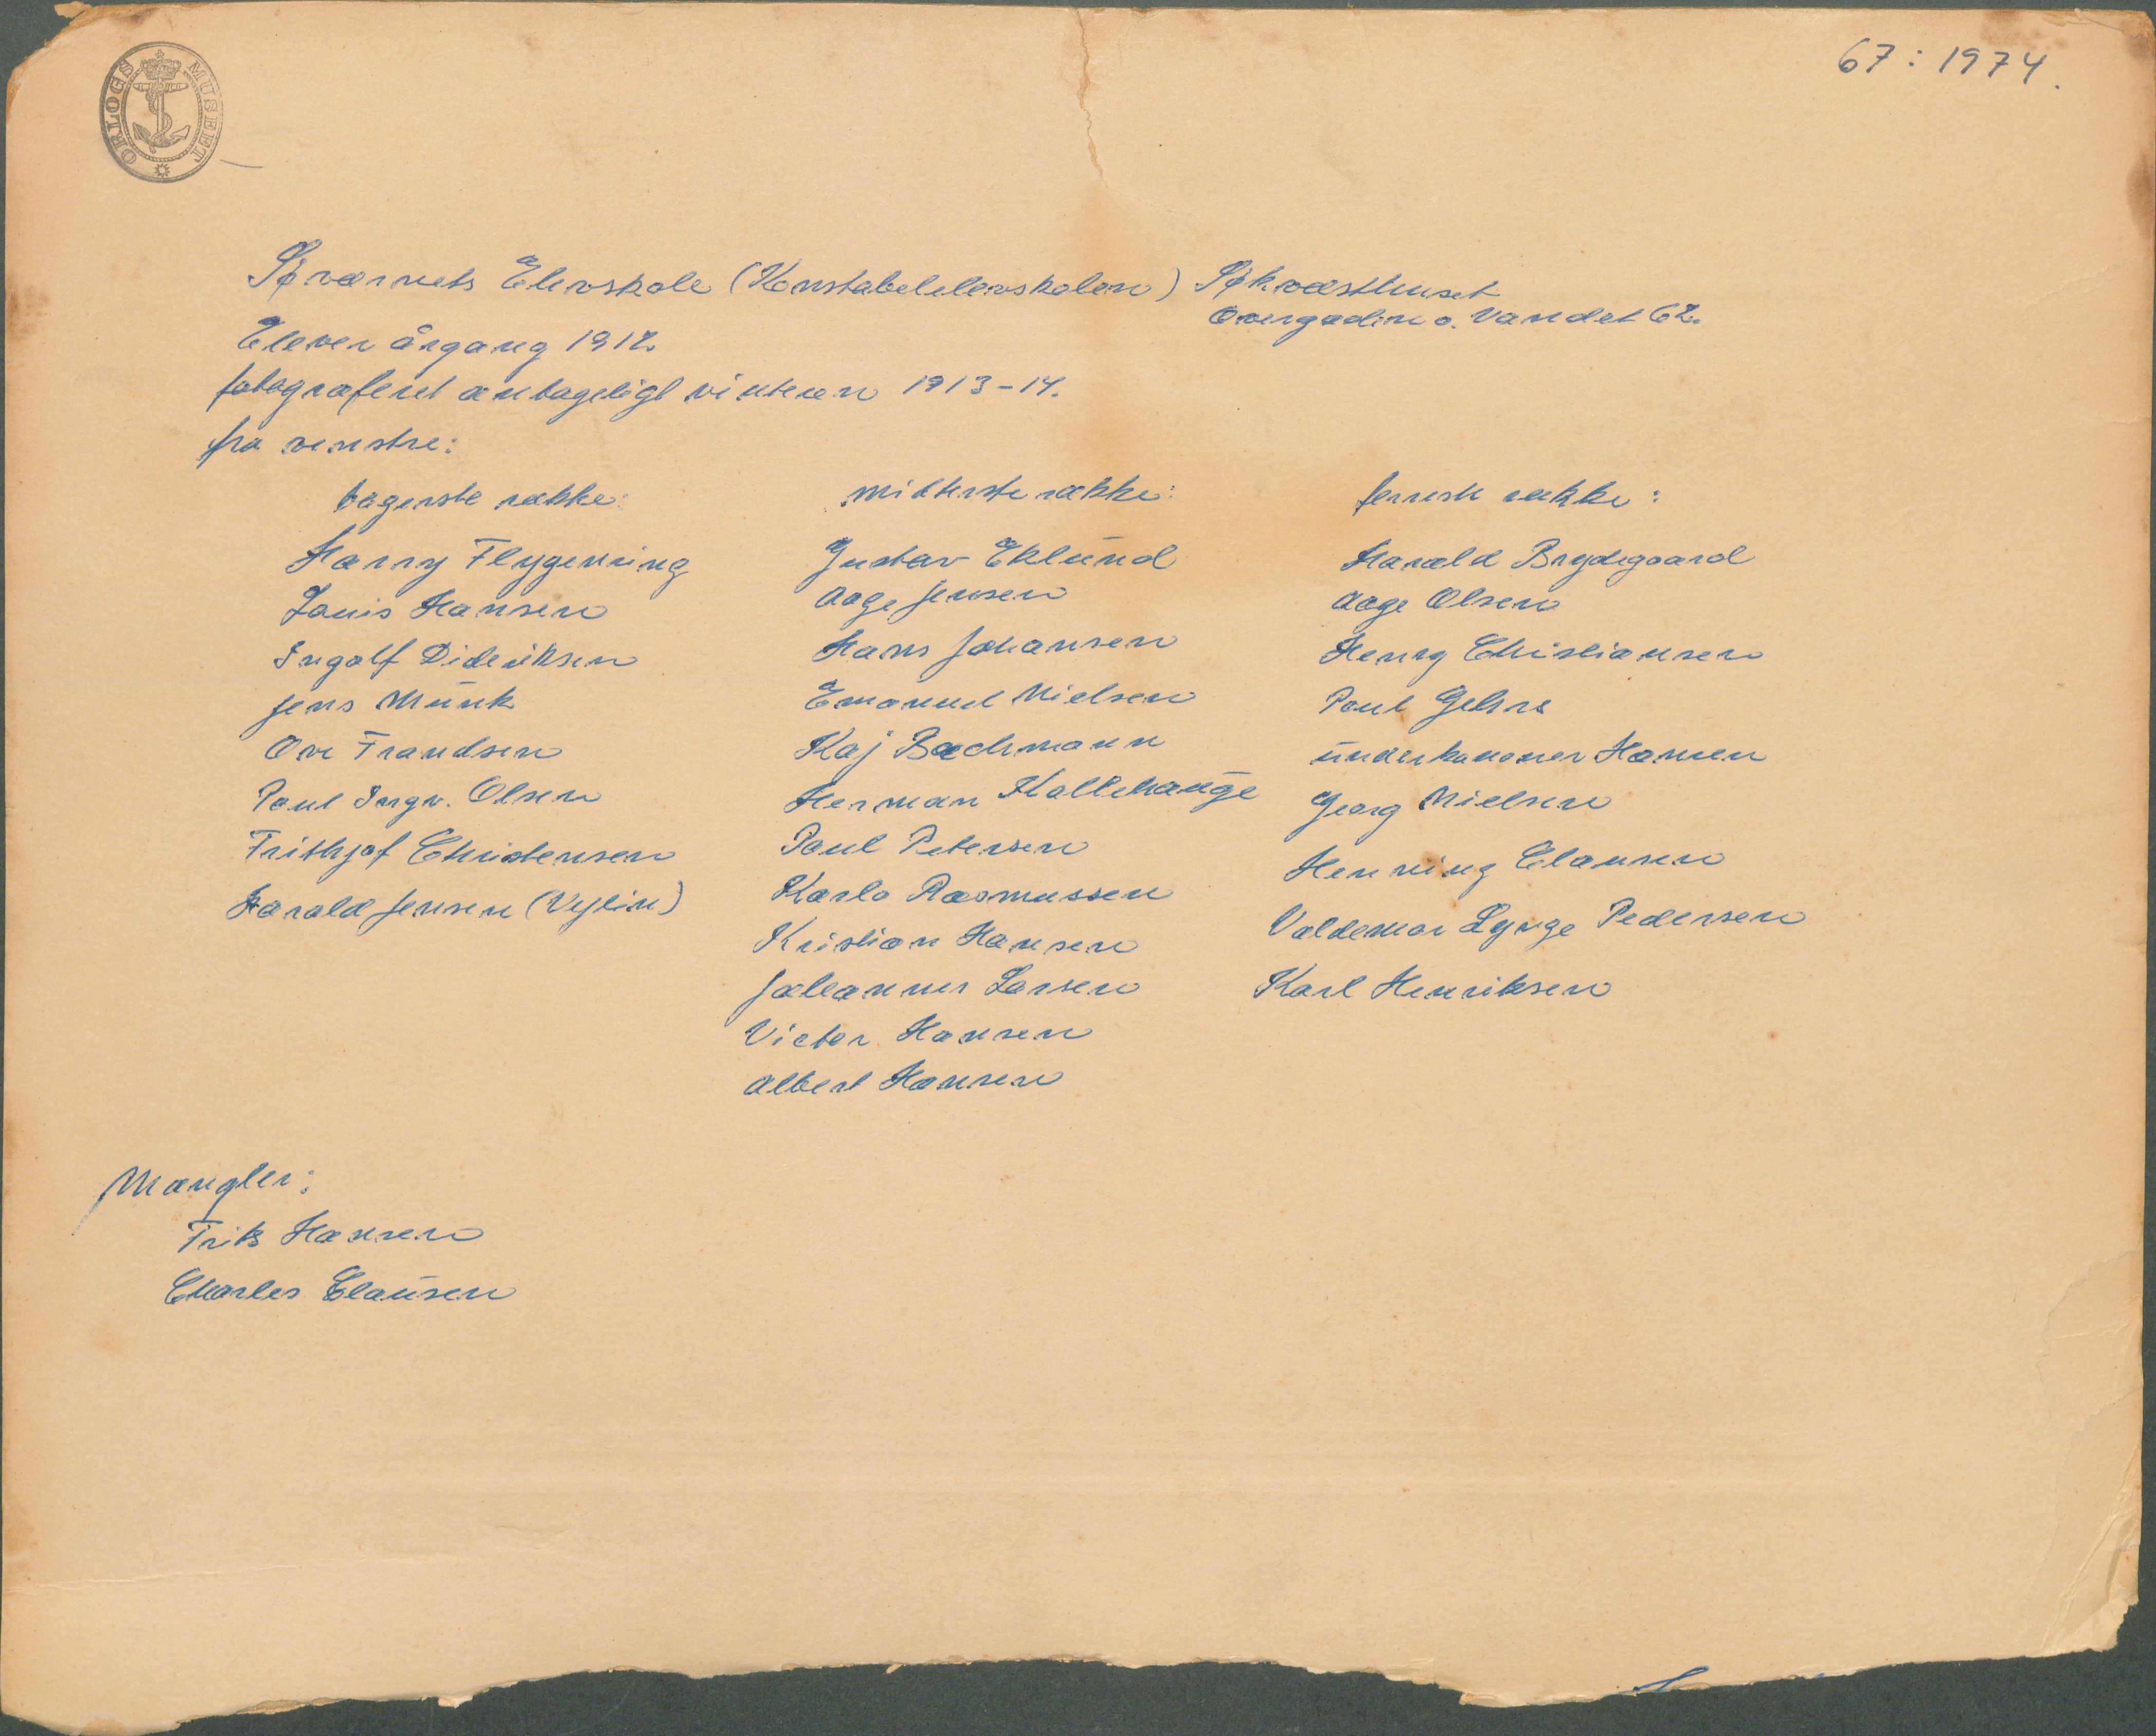 ORLOGS MUSEET
67:1974.
Søværnets Elevskole (Konstabelelevskolen) Søkvæsthuset
Overgaden o. Vandet 62.
Elever årgang 1912.
fotograferet antageligt vinteren 1913-14.
fra venstre:
bagerste række:
Harry Flygenring
Louis Hansen
Ingolf Dideriksen
Jens Munk
Ove Frandsen
Poul Ingv. Olsen
Frithjof Christensen
Harald Jensen (Vejlin)
midterste række:
Gustav Eklund
Aage Jensen
Hans Johansen
Emanuel Nielsen
Kaj Bachmann
Herman Kallehauge
Poul Petersen
Karlo Rasmussen
Kristian Hansen
Johannes Larsen
Victor Hansen
Albert Hansen
forreste række:
Harald Brydegaard
Aage Olsen
Henry Christiansen
Poul Gehrs
underkanoner Hansen
Georg Nielsen
Henning Clausen
Valdemar Lynge Pedersen
Karl Henriksen
Mangler:
Frits Hansen
Charles Clausen